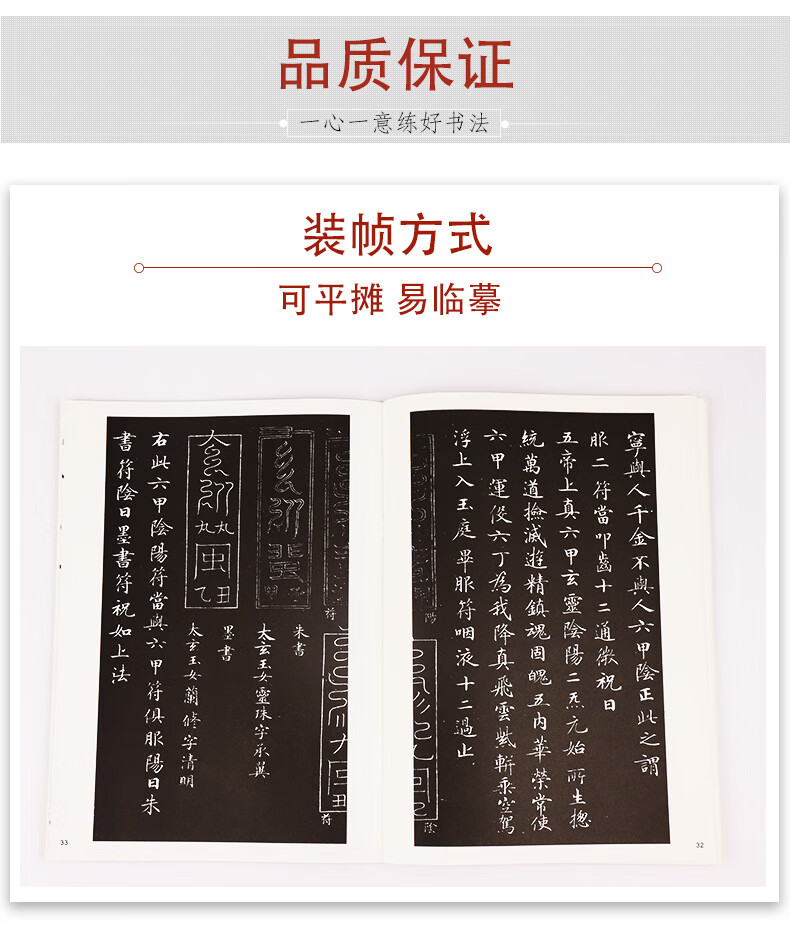 品质保证
一心一意练好书法
装帧方式
可平摊 易临摹
寧與人千金不與人六甲陰正此之謂
服二符當叩齒十二通微祝曰
五帝上真六甲玄靈陰陽二炁元始所生揔
統萬道撿滅遊精鎮魂固魄五内華榮常使
六甲運役六丁為我降真飛雲紫軿乘空駕
浮上入玉庭畢服符咽液十二過止
陽
陰
32
符
符
朱書
太玄玉女靈珠字承翼
墨書
太玄玉女蘭修字清明
右此六甲陰陽符當與六甲符俱服陽日朱
書符陰日墨書符祝如上法
33